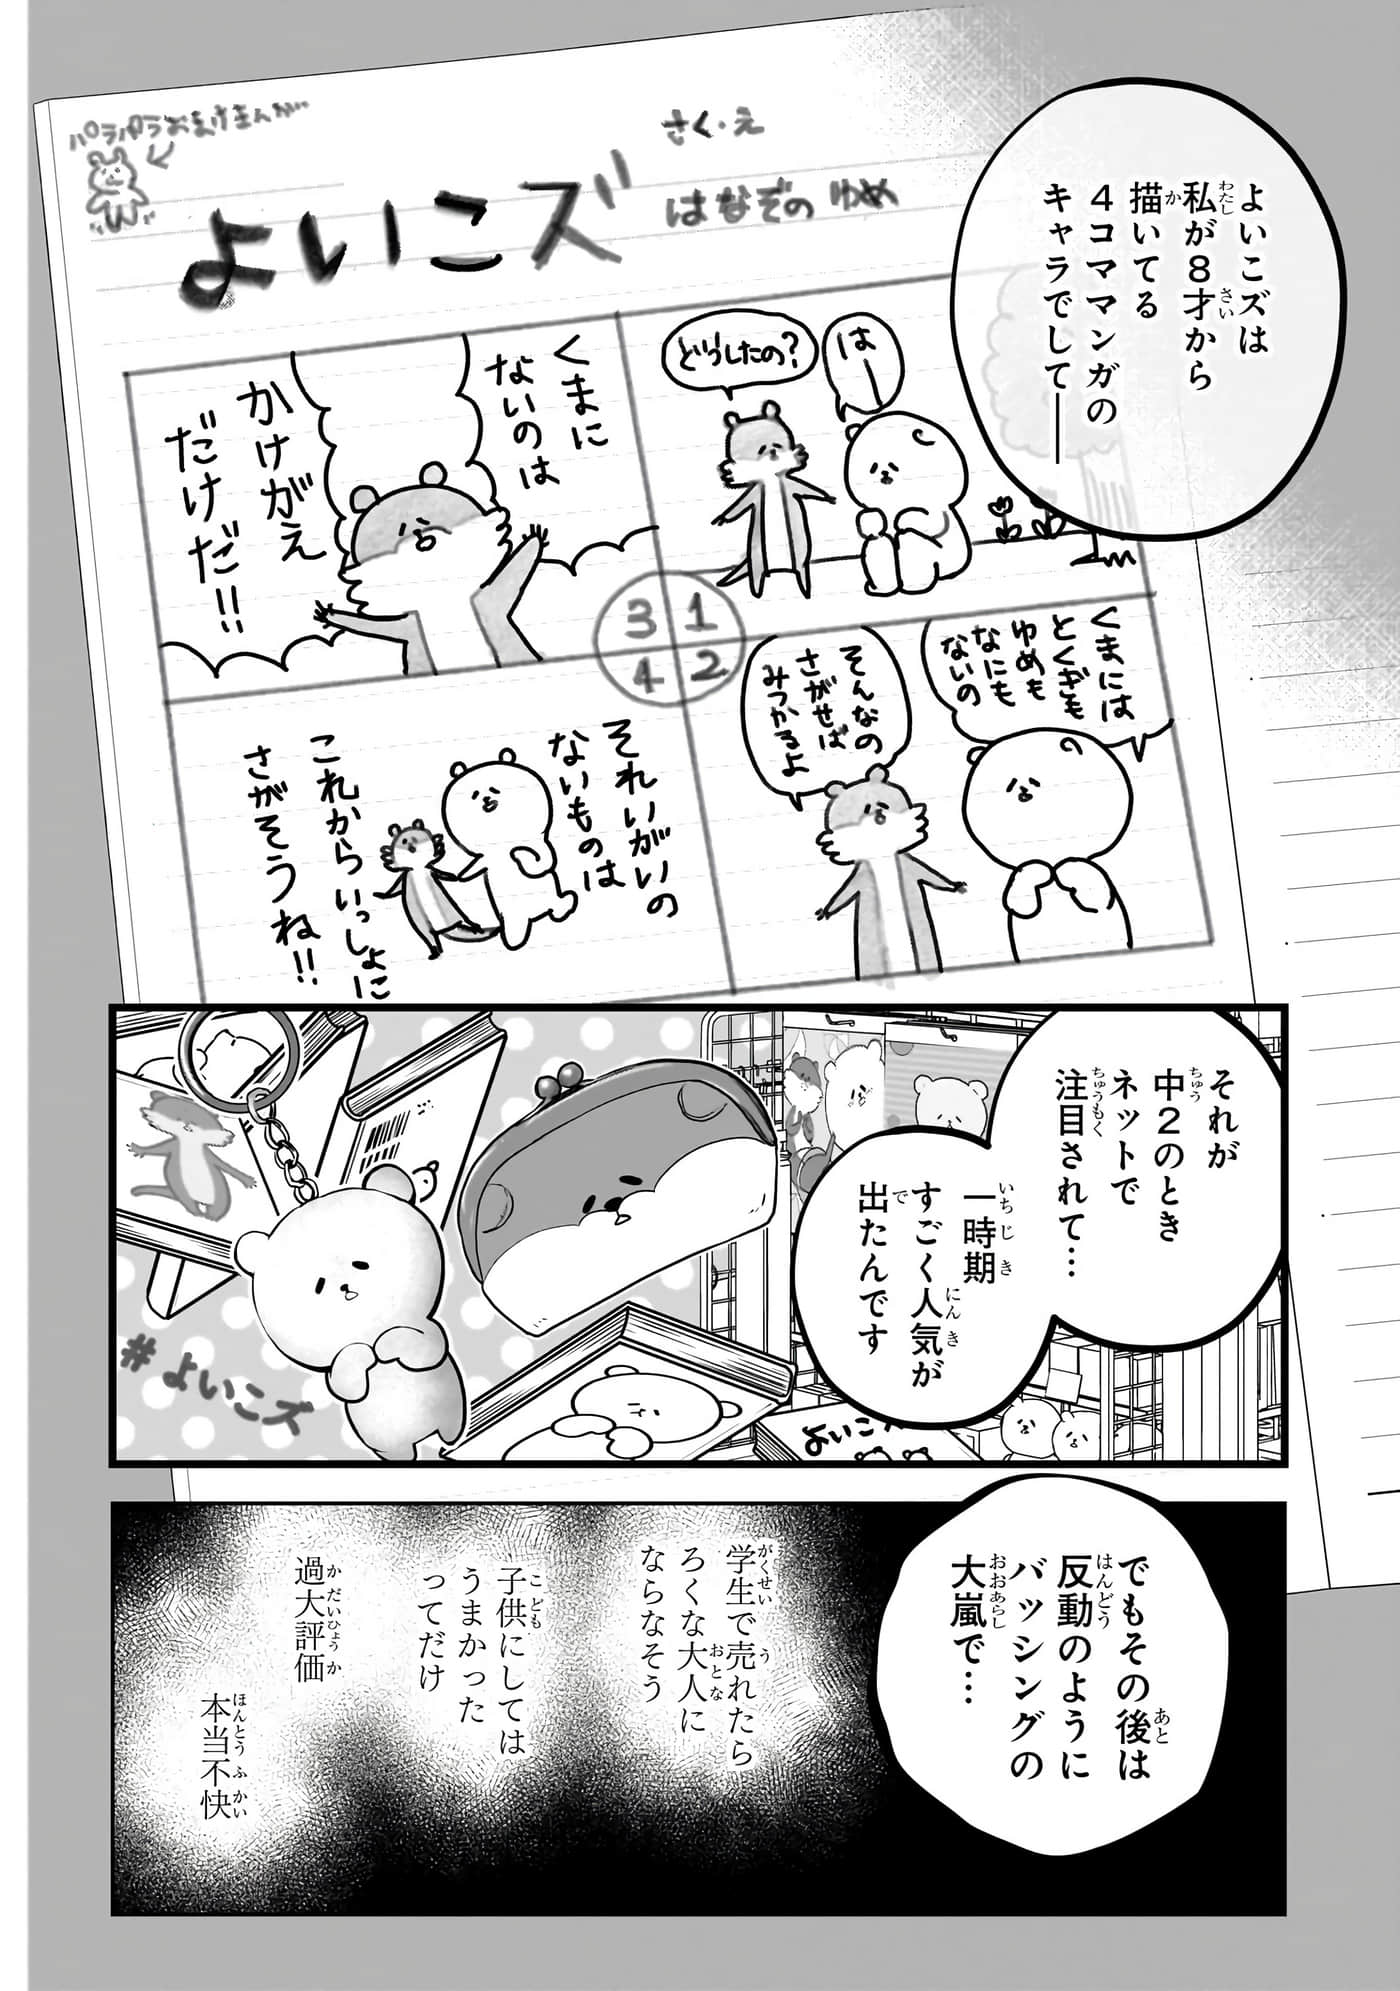 よいこズは
私が8才から
描いてる
4コママンガの
キャラでして――
パラパラおまけまんが
よいこズ
さく・え
はなぞの ゆめ
はー
どうしたの?
1
くまには
とくぎも
ゆめも
なにも
ないの
そんなの
さがせば
みつかるよ
2
くまに
ないのは
かけがえ
だけだ!!
3
それいがいの
ないものは
これからいっしょに
さがそうね!!
4
それが
中2のとき
ネットで
注目されて…
一時期
すごく人気が
出たんです
#よいこズ
よいこズ
でもその後は
反動のように
バッシングの
大嵐で…
学生で売れたら
ろくな大人に
ならなそう
子供にしては
うまかった
ってだけ
過大評価
本当不快